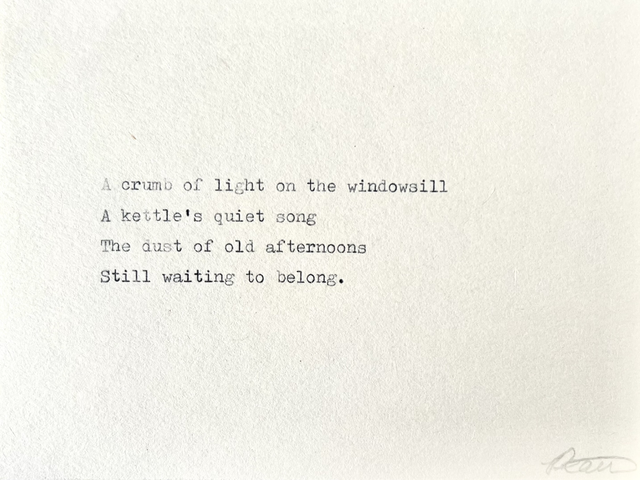 A crumb of light on the windowsill
A kettle's quiet song
The dust of old afternoons
Still waiting to belong.